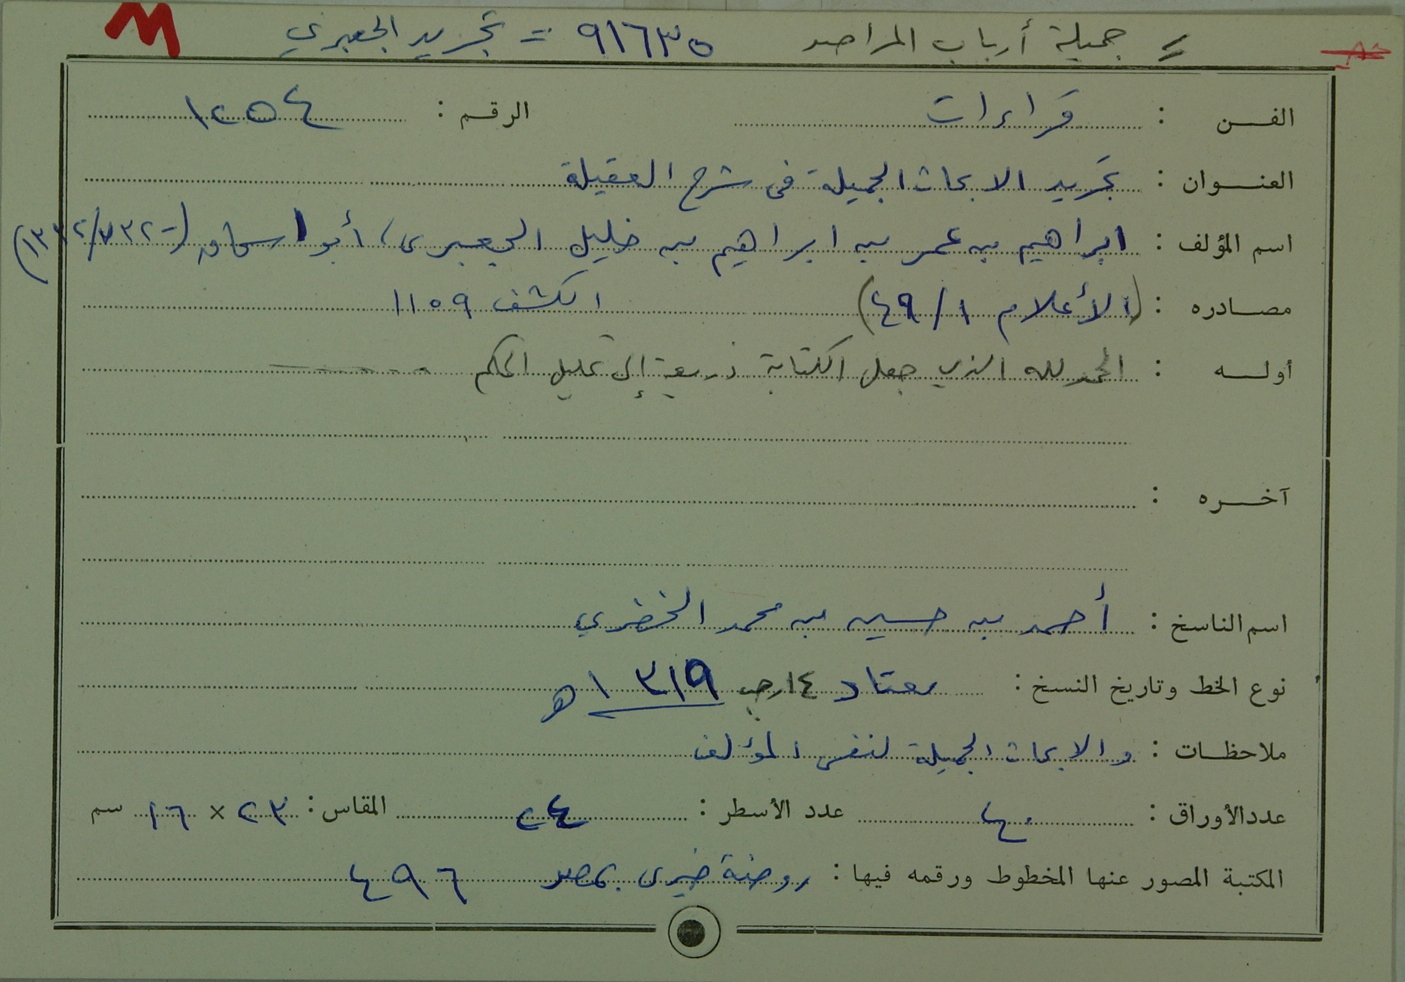 = جميلة أرباب المراصد ٩١٦٣٥ = تجريد الجعبري
الفن : قراءات الرقم : ١٢٥٤
العنوان : تجريد الابحاث الجميلة في شرح العقيلة
اسم المؤلف : ابراهيم بن عمر بن ابراهيم بن خليل الجعبرى، أبو اسحاق (-٧٣٢/١٣٣٢)
مصادره : (الأعلام ١/٤٩) الكشف ١١٥٩
أوله : الحمد لله الذي جعل الكتابة ذريعة إلى تحليل الحكم ......
آخره :
اسم الناسخ : أحمد بن حسين بن محمد الخضري
نوع الخط وتاريخ النسخ : معتاد ١٤ رجب ١٣١٩ هـ
ملاحظات : والابحاث الجميلة لنفس المؤلف
عدد الأوراق : ٤٠ عدد الأسطر : ٢٤ المقاس : ٢٣ × ١٦ سم
المكتبة المصور عنها المخطوط ورقمه فيها : روضة خيرى بمصر ٤٩٦